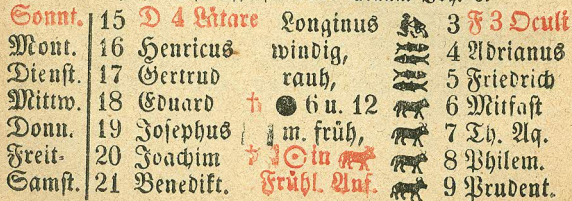 Sonnt. 15 D 4 Lätare Longinus 3 F 3 Oculi
Mont. 16 Henricus windig, 4 Adrianus
Dienst. 17 Gertrud rauh, 5 Friedrich
Mittw. 18 Eduard † ● 6 u. 12 6 Mitfast
Donn. 19 Josephus m. früh, 7 Th. Aq.
Freit. 20 Joachim † ☉ in 8 Philem.
Samst. 21 Benedikt. Frühl. Anf. 9 Prudent.